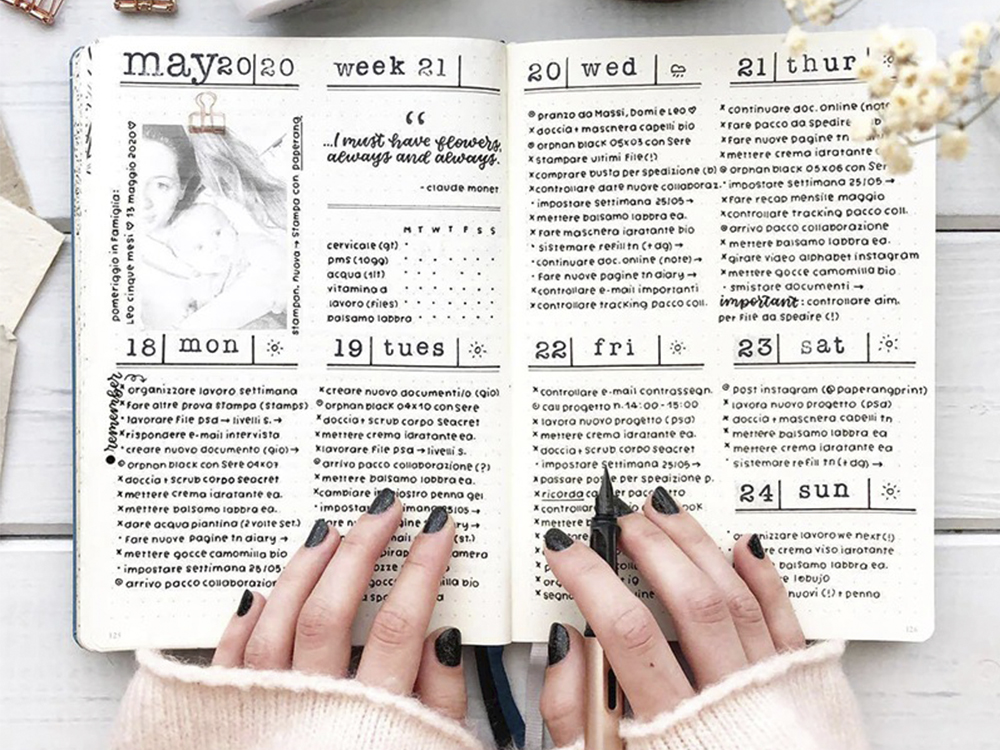 may 20|20
pomeriggio in famiglia:
Leo cinque mesi ♡ 13 maggio 2020♡
stampan. nuova → Stampa con paperang
week 21
“
...I must have flowers,
always and always.
- claude monet
M T W T F S S
cervicale (gt)
pms (1099)
acqua (1lt)
vitamina d
lavoro (files)
balsamo labbra
18 | mon
remember
organizzare lavoro settimana
×fare altre prova stampa (stamps)
lavorare file psd → livelli s. →
×rispondere e-mail intervista
creare nuovo documento (gio) →
orphan black con Sere 04x07
×doccia + scrub corpo seacret
×mettere crema idratante ea.
×mettere balsamo labbra ea.
×dare acqua piantina (2 volte set.)
· fare nuove pagine tn diary →
×mettere gocce camomilla bio
· impostare settimana 25/05 →
arrivo pacco collaborazion
19 | tues
×creare nuovo documento/o (gio)
orphan black 04x10 con Sere
doccia + scrub corpo Seacret
×mettere crema idratante ea.
×lavorare file psd → livelli s.
arrivo pacco collaborazione (?)
×mettere balsamo labbra ea.
×cambiare inchiostro penna gel
· impostare 25/05 →
20 | wed
pranzo da Massi, Domi e Leo ♡
×doccia + maschera capelli bio
orphan black 05x03 con Sere
×stampare ultimi file (!)
×comprare busta per spedizione (b)
×controllare date nuove collaboraz.
· impostare settimana 25/05 →
×mettere balsamo labbra ea.
×fare maschera idratante bio
· sistemare refill tn (+dg) →
· continuare doc. online (note) →
· fare nuove pagine tn diary →
×controllare e-mail importanti
×controllare tracking pacco coll.
21 | thur
×continuare doc. online (note
×fare pacco da spedire
×fare nuove pagine tn
×mettere crema idratante
orphan black 05x06 con Ser
· impostare settimana 25/05 →
×fare recap mensile maggio
×controllare tracking pacco coll.
arrivo pacco collaborazione
×mettere balsamo labbra ea.
×girare video alphabet instagram
×mettere gocce camomilla bio
· smistare documenti →
important: controllare dim.
per file da spedire (!)
22 | fri
×controllare e-mail contrassegn.
call progetto n. 14:00-15:00
×lavora nuovo progetto (psd)
×mettere crema idratante ea.
×doccia + scrub corpo seacret
· impostare settimana 25/05 →
×passare posta per spedizione p.
×ricorda
23 | sat
post instagram (@paperangprint)
×lavora nuovo progetto (psd)
×doccia + maschera capelli tn
×mettere balsamo labbra ea
×mettere crema idratante ea
sistemare refill tn (+dg) →
24 | sun
organizzare lavoro we next (!)
crema viso idratante
balsamo labbra ea.
nuovi (!) + penno
125
126